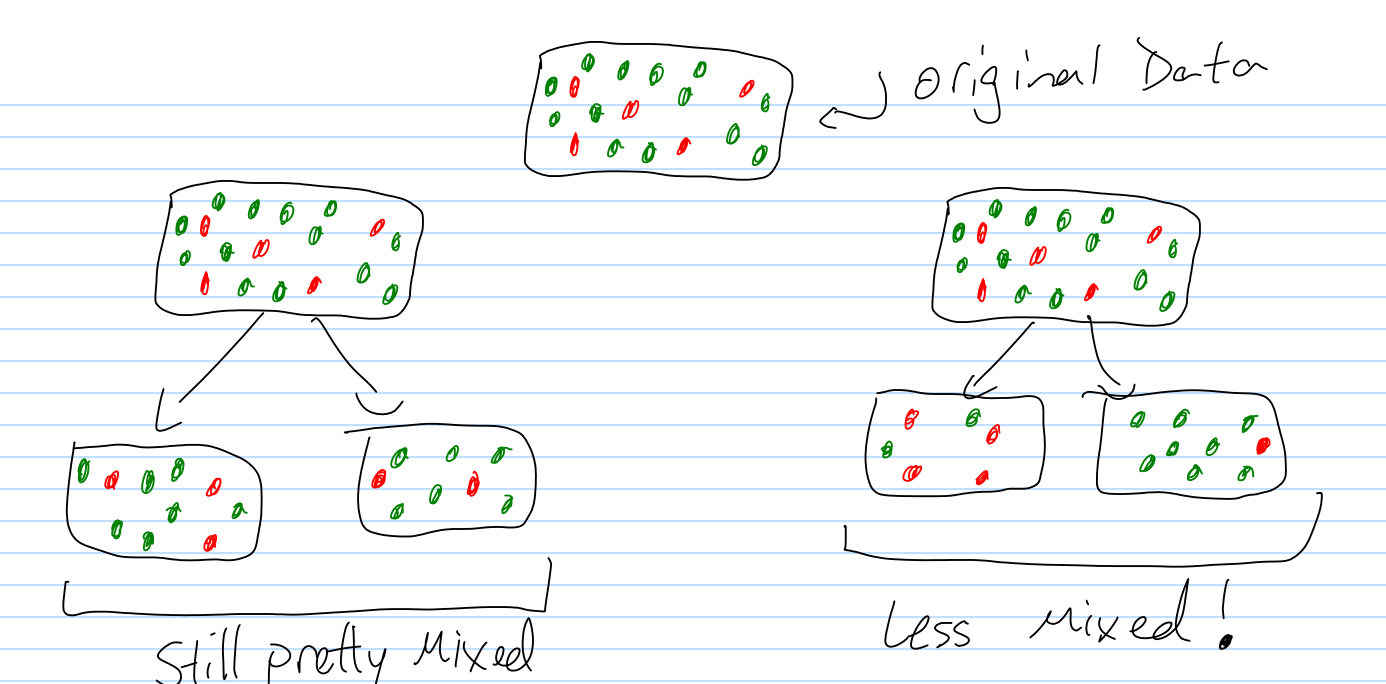 original Data
Still pretty Mixed
Less Mixed!